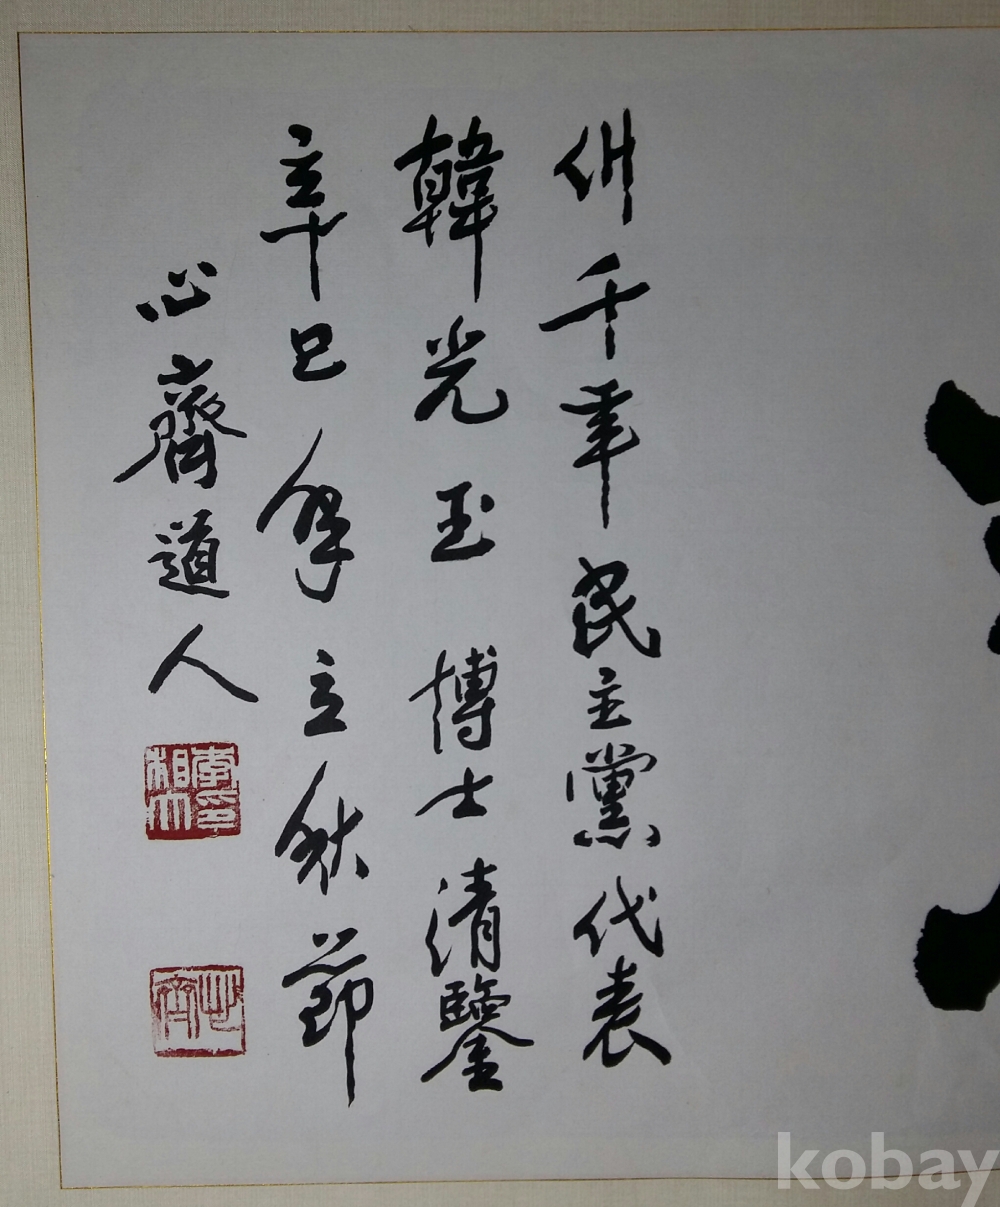 千年民主黨代表
韓光玉博士清鑒
辛巳立秋節
心齋道人
kobay